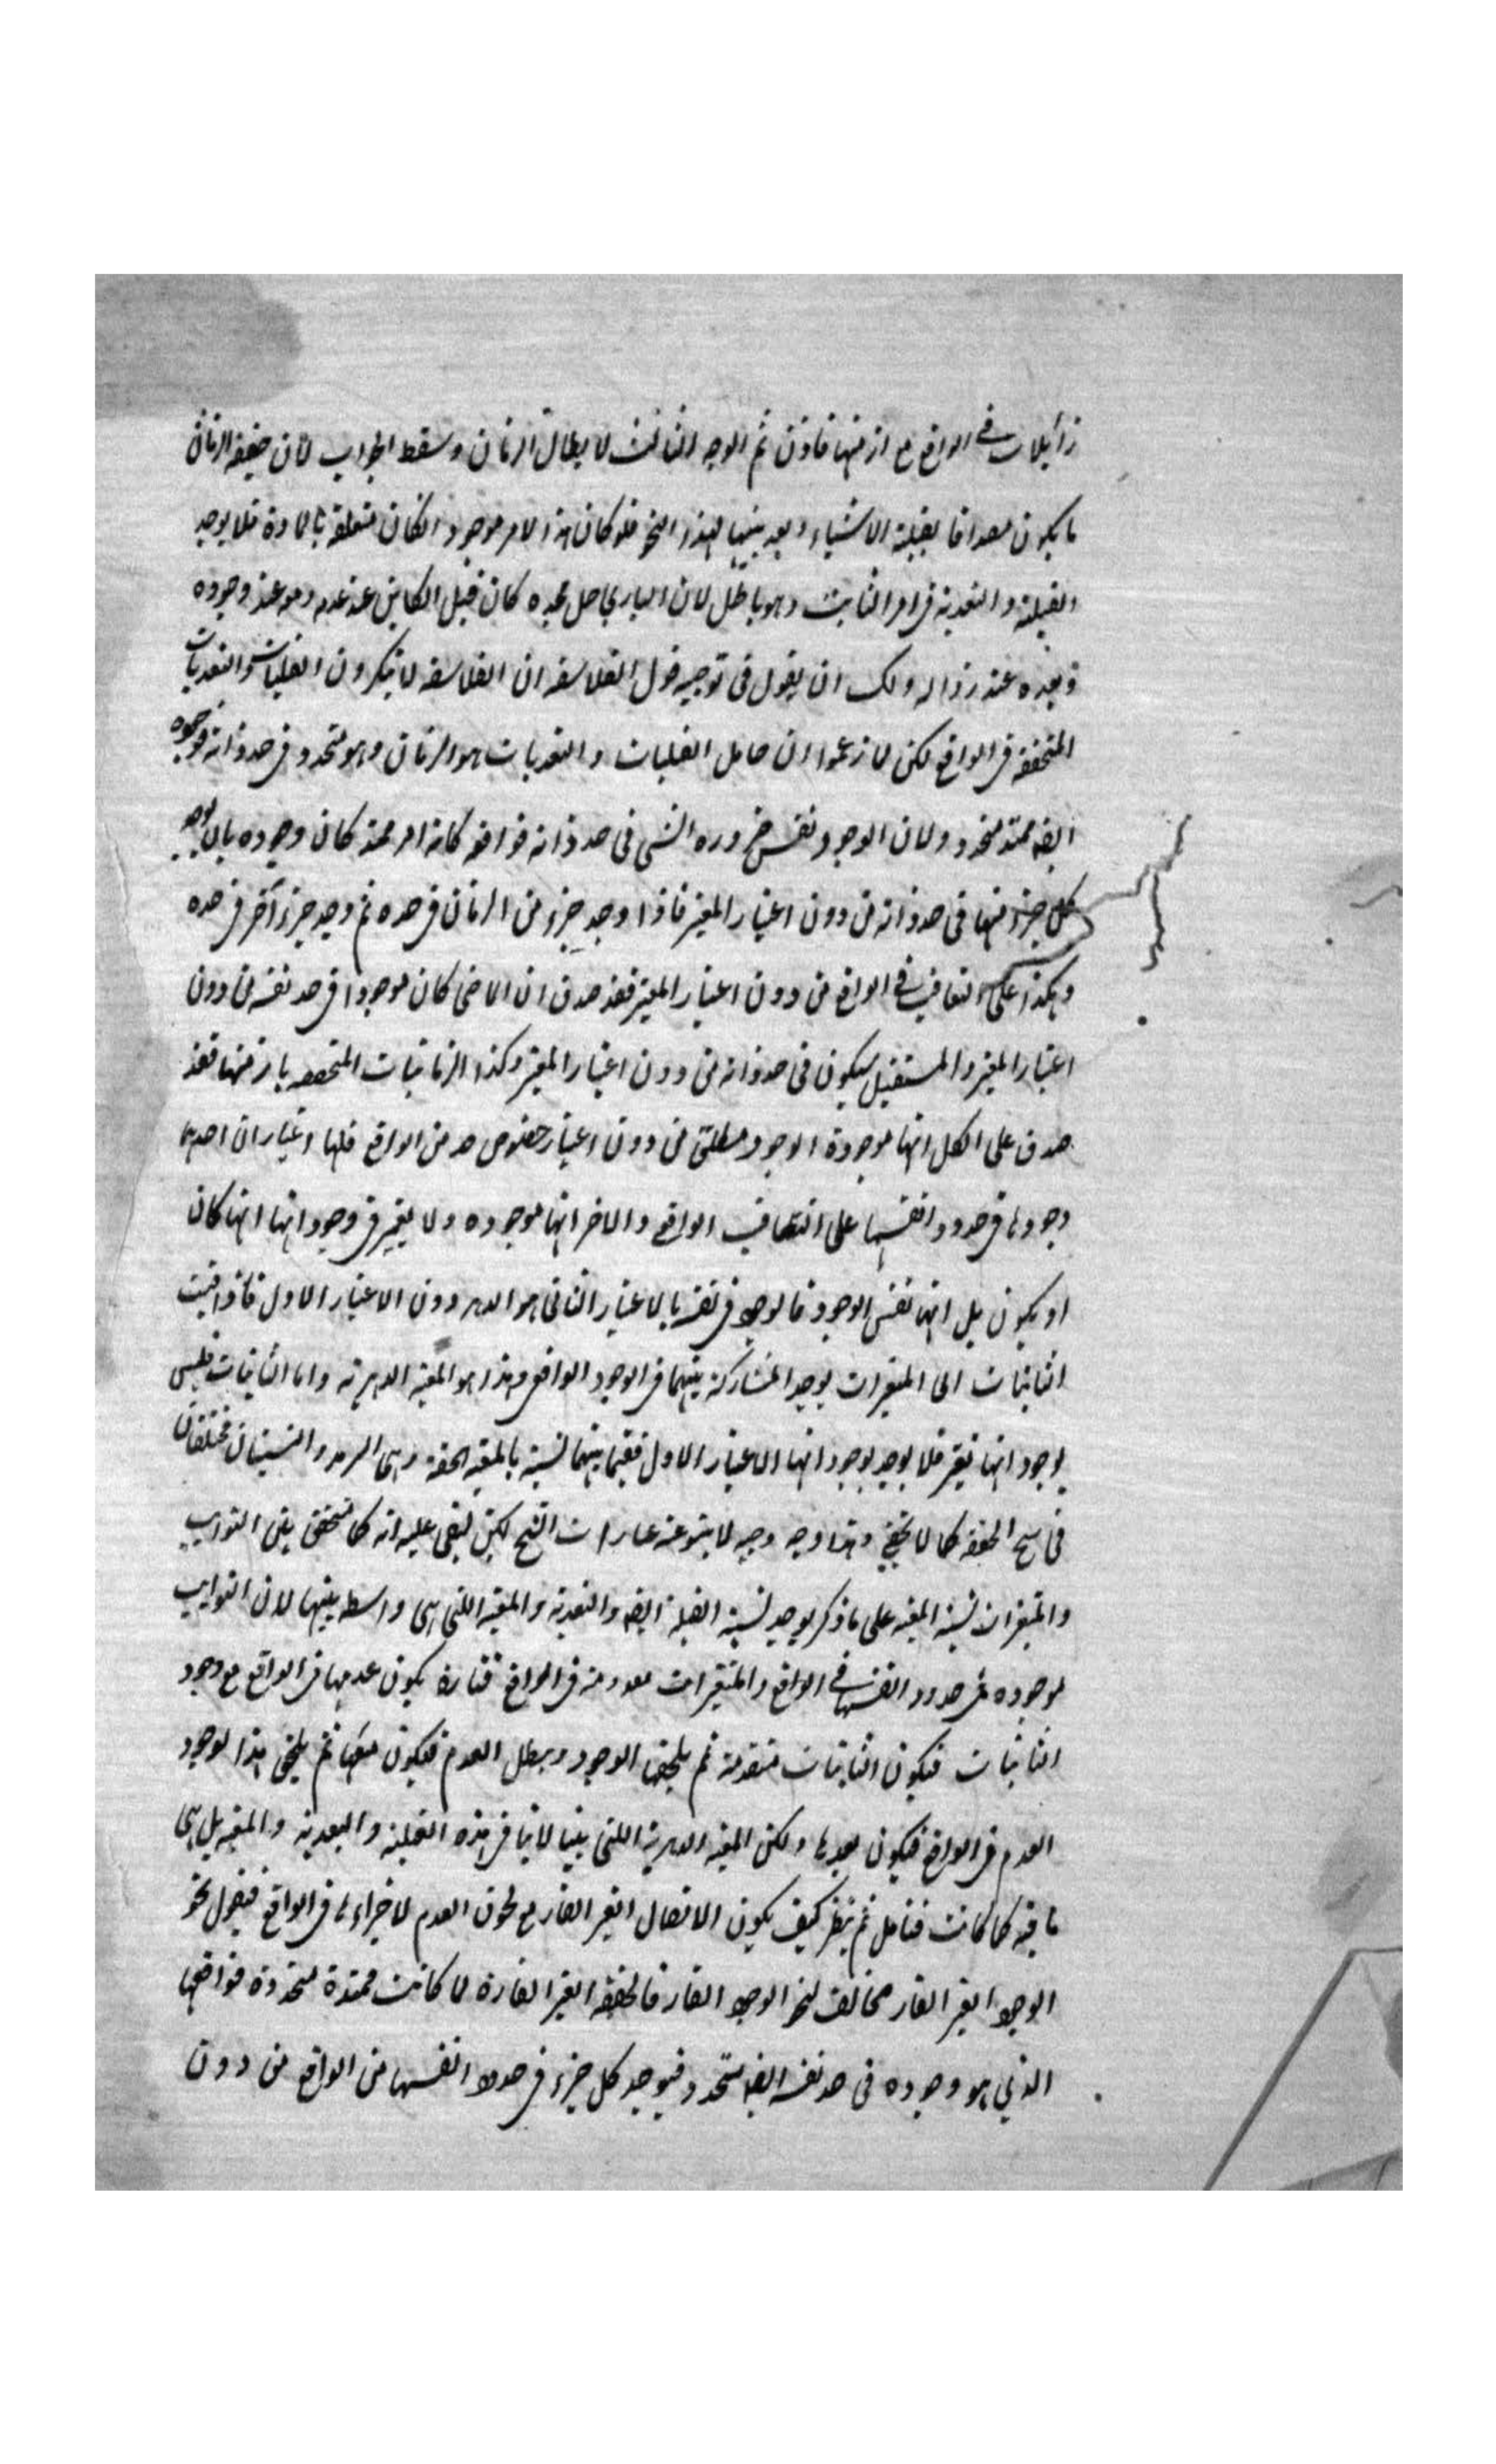 زائلات في الواقع مع ازمنتها فاذن ثم الوجه الثالث لابطال الزمان وسقط الجواب لان حقيقة الزمان
ما يكون مصداقا بقبلية الاشياء وبعديتها بهذا النحو فلو كان هذا الامر موجودا لكان متعلقة بالمادة فلا يوجد
القبلية والبعدية في امر الثابت وهو باطل لان الباري جل مجده كان قبل الكاين عند عدمه ومعه عند وجوده
وبعده عند زواله ولك ان يقول في توجيه قول الفلاسفه ان الفلاسفه لا ينكرون القبليات والبعديات
المتحققه في الواقع لكن لما زعموا ان حامل القبليات والبعديات هو الزمان وهو متجدد في حد ذاته فوجوده
ايضه ممتد متجدد ولان الوجود نفس ضرورة الشى في حد ذاته فواقعه كانه امر ممتد كان وجوده بان يوجد
كل جزء منها في حد ذاته من دون اعتبار المعية فاذا وجد جزء من الزمان في حده ثم وجد جزء آخر في حده
وهكذا على التعاقب في الواقع من دون اعتبار المعية فقد صدق ان الماضى كان موجودا في حد نفسه من دون
اعتبار المعية والمستقبل سيكون في حد ذاته من دون اعتبار المعية وكذا الزمانيات المتحققه بازمنتها فقد
صدق على الكل انها موجودة الوجود مطلق من دون اعتبار خصوص حد من الواقع فلها اعتباران احدهما
وجودها في حدود انفسها على التعاقب الواقع والاخر انها موجوده ولا يعتبر في وجوداتها انها كان
او يكون بل انها نفس الوجود فالوجود في نفسه بالاعتبار الثانى هو الدهر دون الاعتبار الاول فاذا قيست
الثابتات الى المتغيرات يوجد المشاركة بينهما في الوجود الواقعى وهذا هو المعية الدهرية واما الثابتات فليس
لوجوداتها تغير فلا يوجد لوجوداتها الاعتبار الاول ففيما بينهما نسبة بالمعيه الحقه وهى السرمد والنسبتان مختلفتان
في الحققه كما لا يخفى وهذا وجه وجيه لا ينبو عنه عبارات الشيخ لكن يبقى عليه انه كما يتحقق بين الثوابت
والمتغيرات نسبة المعيه على ما ذكر يوجد نسبة القبلية ايضه والبعدية والمعية التى هى واسطه بينهما لان الثوابت
موجوده في حدود انفسها في الواقع والمتغيرات معدومة في الواقع فتارة يكون عدمها في الواقع مع وجود
الثابتات فيكون الثابتات متقدمة ثم يلحقها الوجود ويبطل العدم فيكون معها ثم يلحق هذا الوجود
العدم في الواقع فيكون بعدها ولكن المعية الدهرية التى بينها لا ينافي هذه القبلية والبعدية والمعيه بل هى
باقيه كما كانت فتامل ثم ينظر كيف يكون الاتصال الغير القار مع لحوق العدم لاجزاءها في الواقع فيقول نحو
الوجود الغير القار مخالف لنحو الوجود القار فالحقيقه الغير القارة لما كانت ممتدة متجددة فواقعها
الذي هو وجوده في حد نفسه ايضه متجدد فيوجد كل جزء في حدود انفسها من الواقع من دون